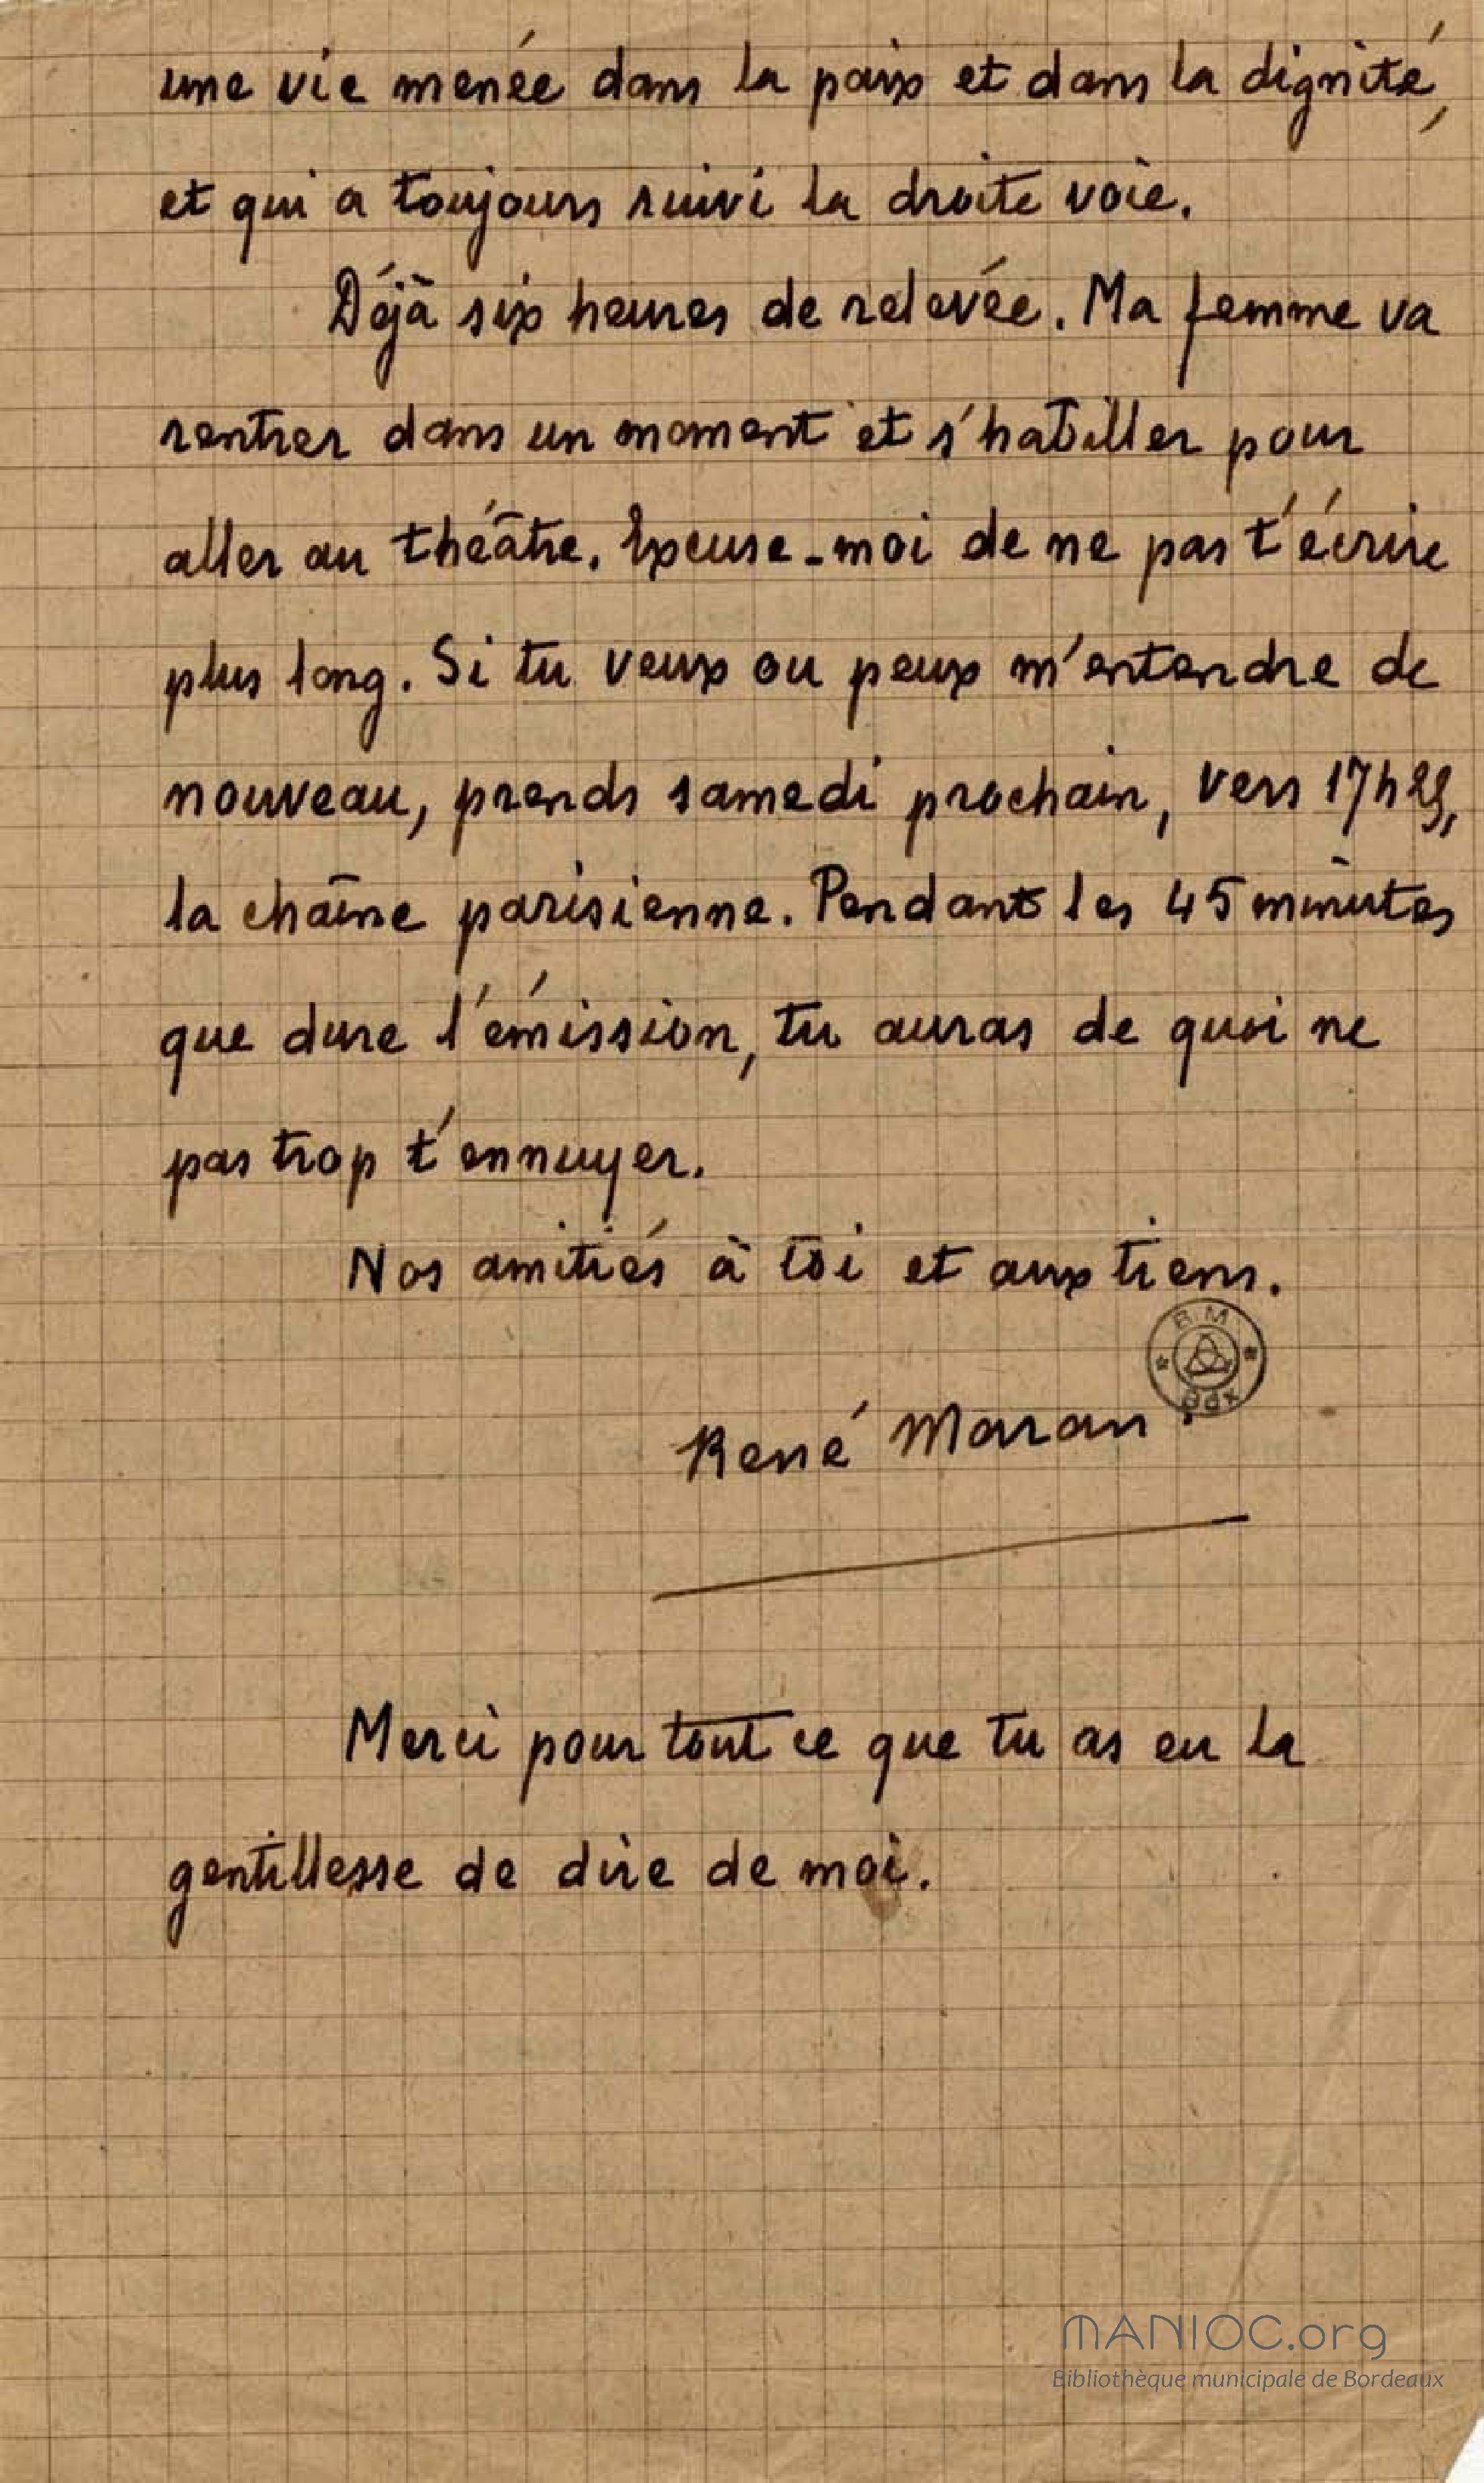 une vie menée dans la paix et dans la dignité,
et qui a toujours suivi la droite voie.
Déjà six heures de relevée. Ma femme va
rentrer dans un moment et s'habiller pour
aller au théâtre. Excuse-moi de ne pas t'écrire
plus long. Si tu veux ou peux m'entendre de
nouveau, prends samedi prochain, vers
la chaîne parisienne. Pendant les 45 minutes
que dure l'émission, tu auras de quoi ne
pas trop t'ennuyer.
Nos amitiés à toi et aux tiens.
B.M.
Bdx
René Maran.
Merci pour tout ce que tu as eu la
gentillesse de dire de moi.
MANIOC.org
Bibliothèque municipale de Bordeaux